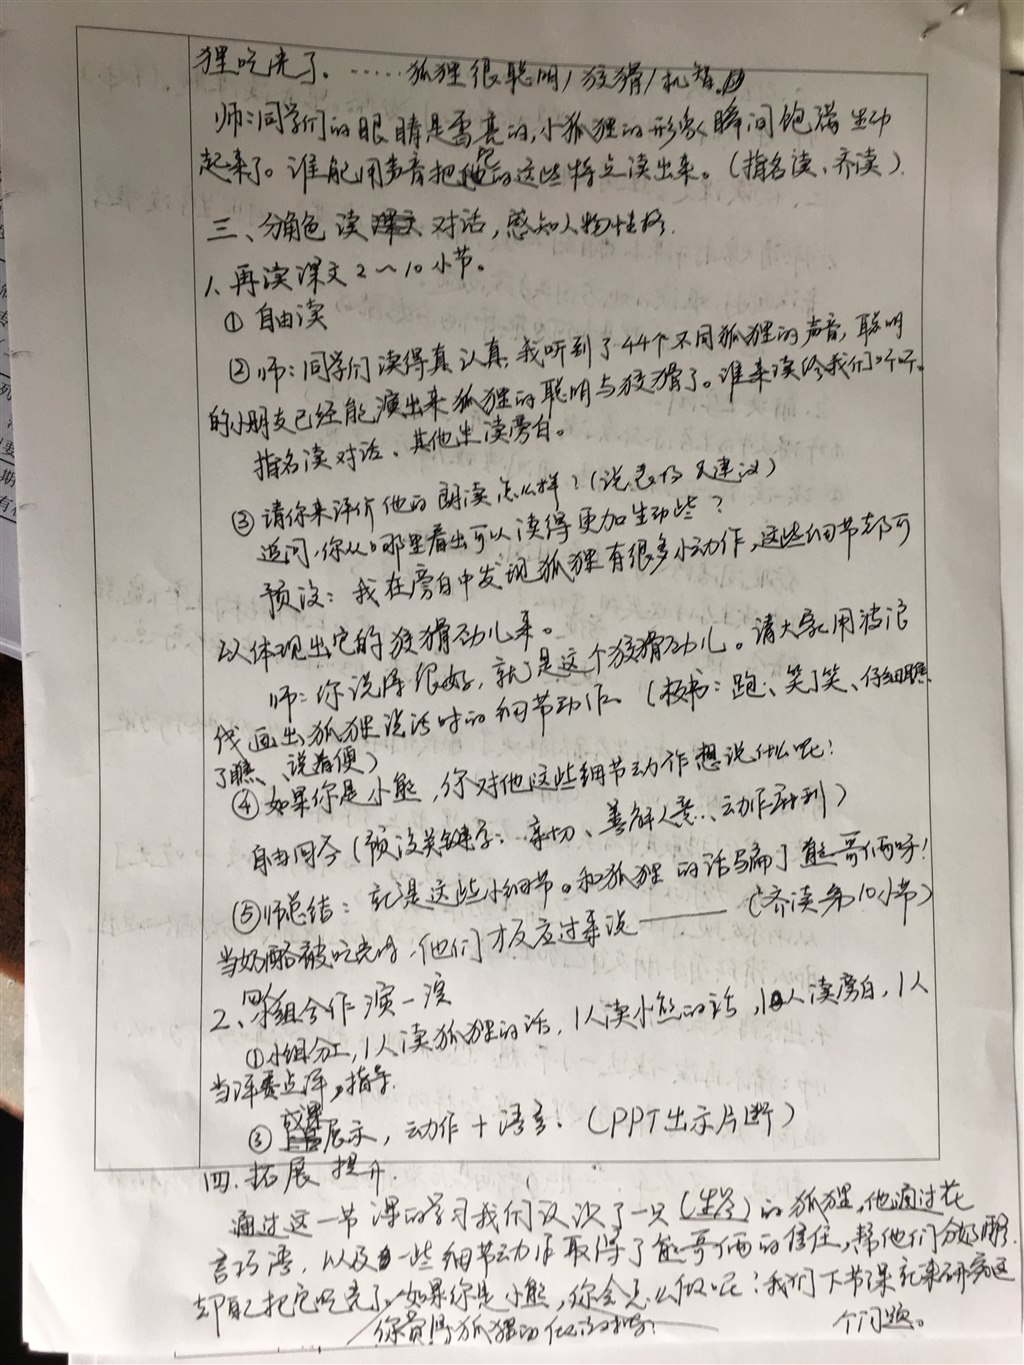 狸吃完了。……狐狸很聪明/狡猾/机智。
师:同学们的眼睛是雪亮的,小狐狸的形象瞬间饱满生动
起来了。谁能用声音把它的这些特点读出来。(指名读、齐读)
三、分角色读对话,感知人物性格.
1、再读课文2~10小节。
①自由读
②师:同学们读得真认真,我听到了44个不同狐狸的声音,聪明
的小朋友已经能演出来狐狸的聪明与狡猾了。谁来读给我们听听。
指名读对话、其他生读旁白。
③请你来评价他的朗读怎么样?(说表扬及建议)
追问,你从哪里看出可以读得更加生动些?
预设:我在旁白中发现狐狸有很多小动作,这些细节都可
以体现出它的狡猾劲儿来。
师:你说得很好,就是这个狡猾劲儿。请大家用波浪
线画出狐狸说话时的细节动作。(板书:跑、笑了笑、仔细瞧
了瞧、说着便)
④如果你是小熊,你对他这些细节动作想说什么呢?
自由回答(预设关键字:亲切、善解人意、动作麻利)
⑤师总结:就是这些小细节。和狐狸的话骗了熊哥俩呀!
当奶酪被吃完时,他们才反应过来说———(齐读第10小节)
2、四人小组合作演一演
①小组分工,1人读狐狸的话,1人读小熊的话,1人读旁白,1人
当评委点评,指导.
③成果展示,动作+语言!(PPT出示片断)
四.拓展提升.
通过这一节课的学习我们认识了一只(生答)的狐狸,他通过花
言巧语,以及一些细节动作取得了熊哥俩的信任,帮他们分奶酪.
却自己把它吃完了,如果你是小熊,你会怎么做呢?我们下节课就来研究这
个问题。
你赞同狐狸的做法吗?